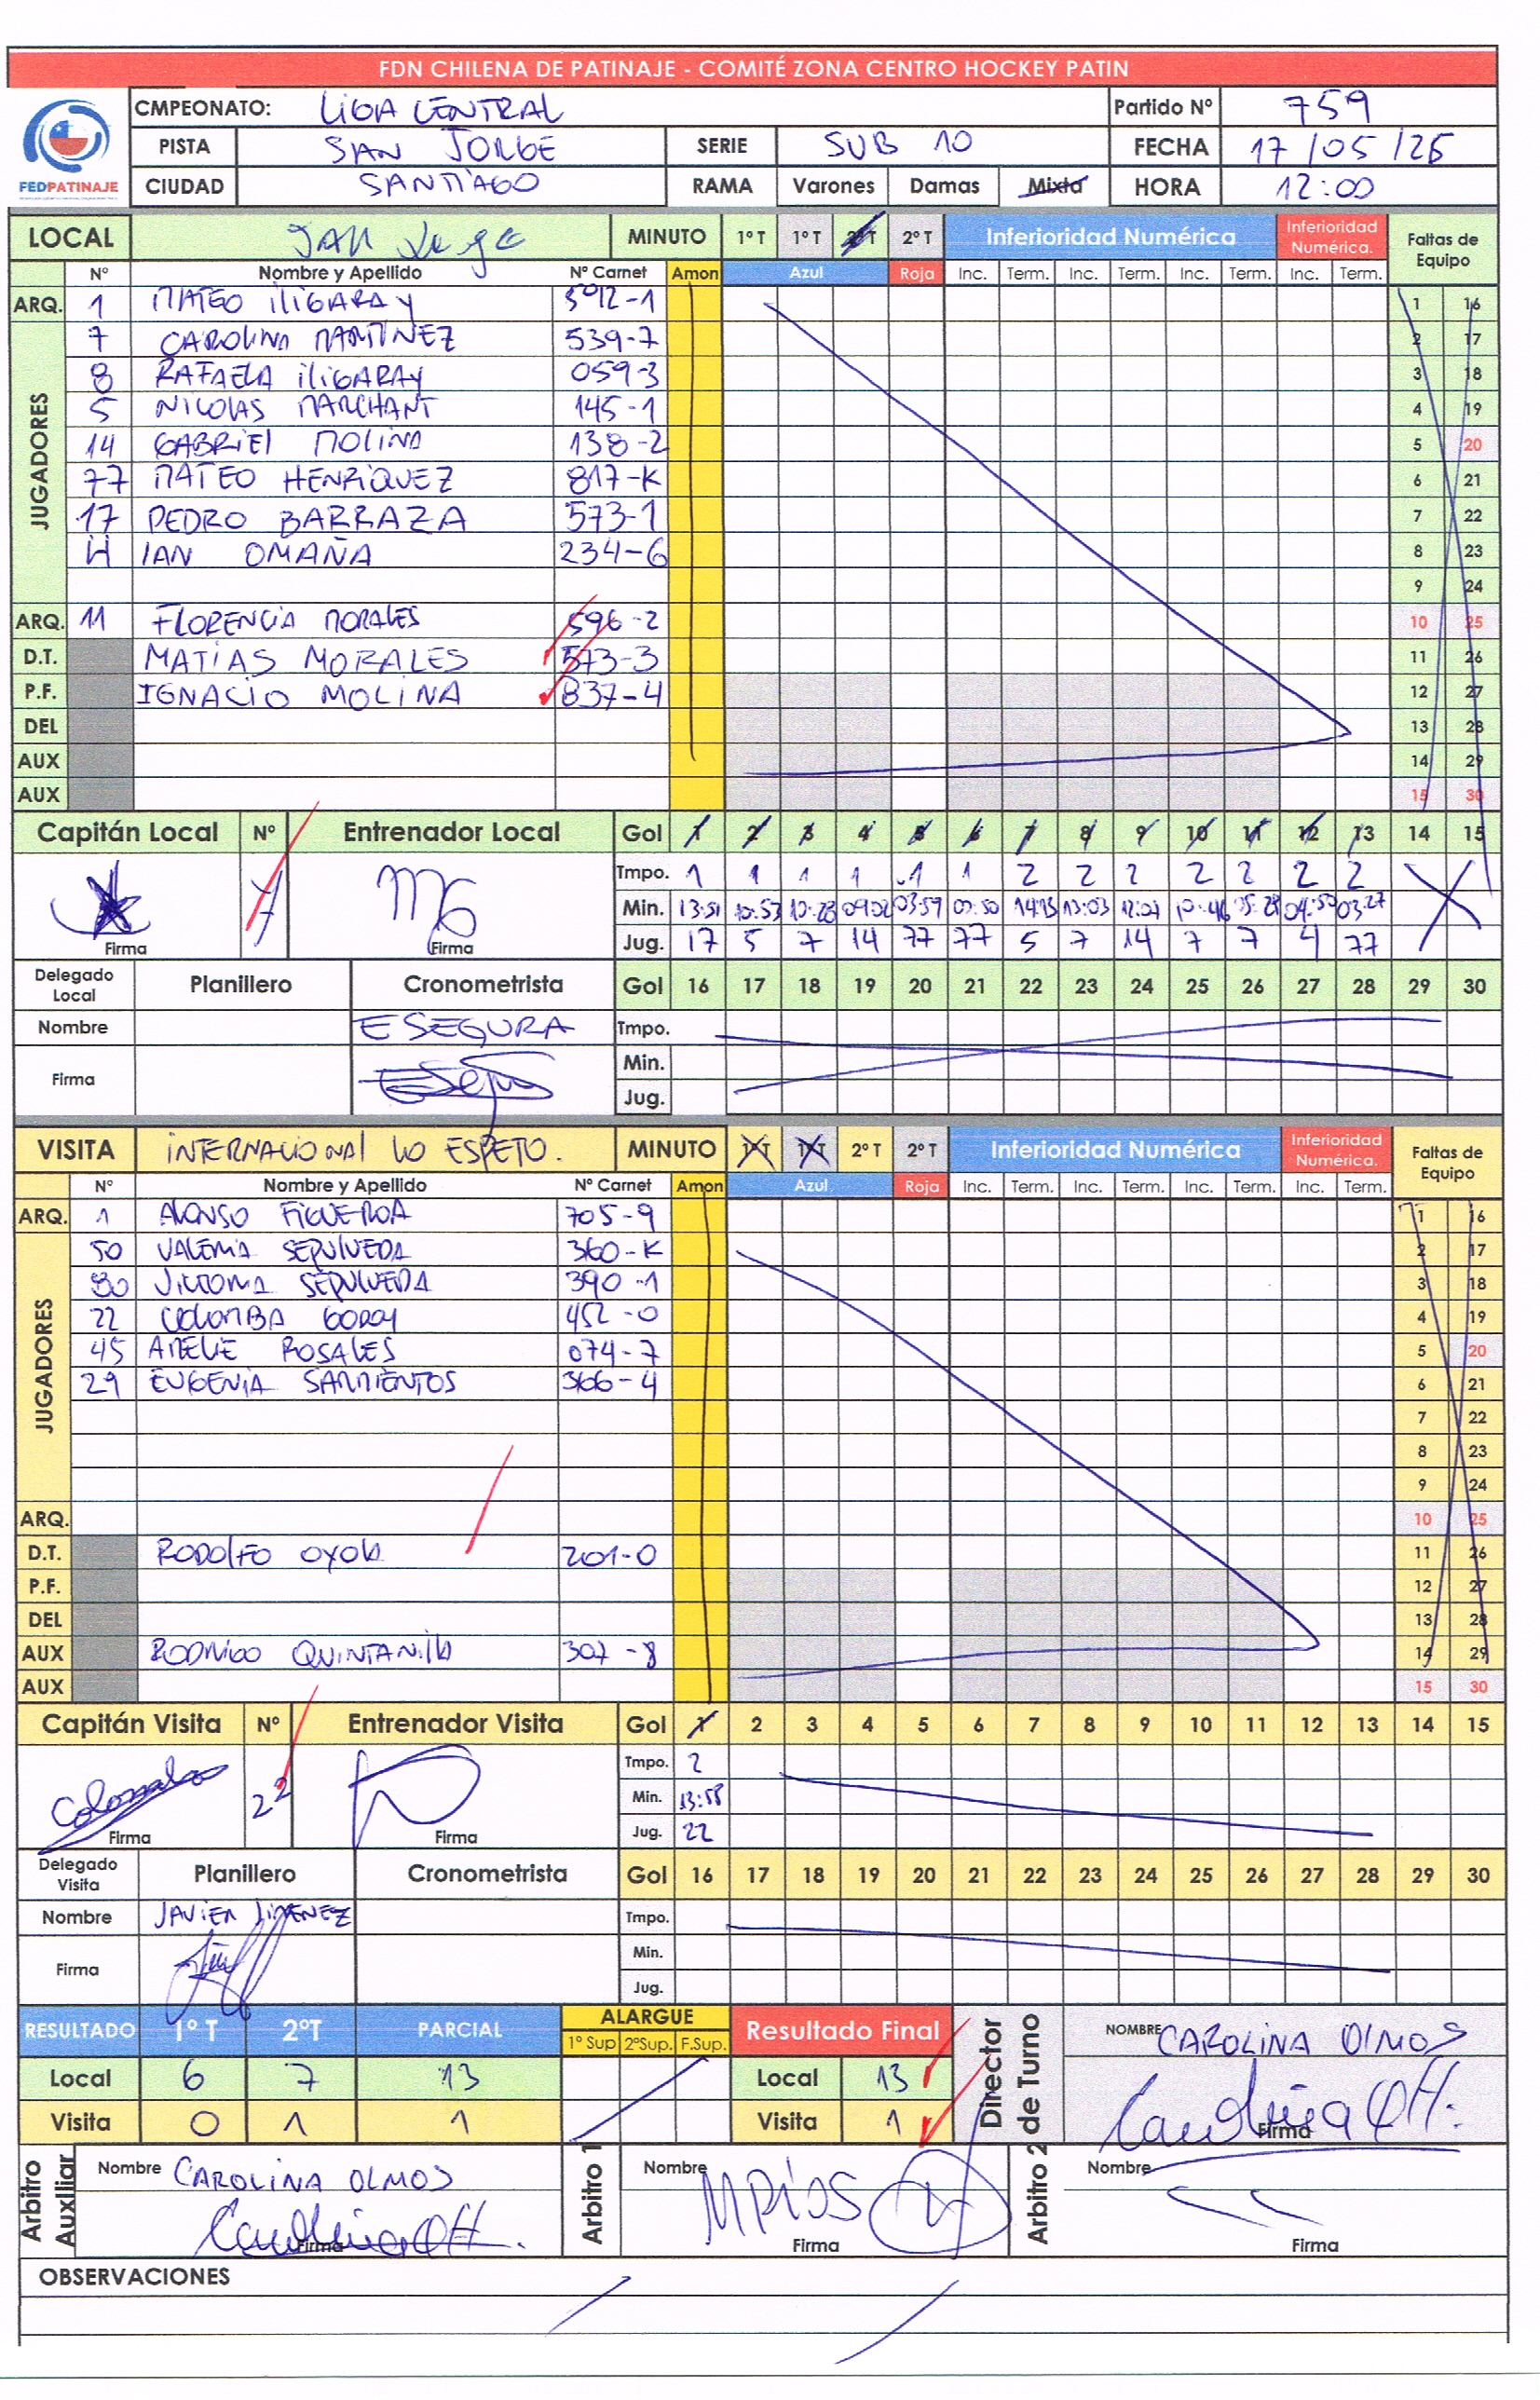 FDN CHILENA DE PATINAJE - COMITÉ ZONA CENTRO HOCKEY PATIN
FEDPATINAJE
CMPEONATO: LIGA CENTRAL Partido Nº 759
PISTA SAN JORGE SERIE SUB 10 FECHA 17/05/26
CIUDAD SANTIAGO RAMA Varones Damas Mixta HORA 12:00
LOCAL San Jorge MINUTO 1º T 1º T 2º T 2º T Inferioridad Numérica Inferioridad Numérica. Faltas de Equipo
Nº Nombre y Apellido Nº Carnet Amon Azul Roja Inc. Term. Inc. Term. Inc. Term. Inc. Term.
JUGADORES
ARQ. 1 MATEO ILIGARAY 5912-1 1 16
7 CAROLINA MARTINEZ 539-7 2 17
8 RAFAELA ILIGARAY 059-3 3 18
5 NICOLAS MARCHANT 145-1 4 19
14 GABRIEL MOLINA 138-2 5 20
77 MATEO HENRIQUEZ 817-K 6 21
17 PEDRO BARRAZA 573-1 7 22
4 IAN OMAÑA 234-6 8 23
9 24
ARQ. 11 FLORENCIA MORALES 596-2 10 25
D.T. MATIAS MORALES 573-3 11 26
P.F. IGNACIO MOLINA 837-4 12 27
DEL 13 28
AUX 14 29
AUX 15 30
Capitán Local Nº Entrenador Local Gol 1 2 3 4 5 6 7 8 9 10 11 12 13 14 15
Tmpo. 1 1 1 1 1 1 2 2 2 2 2 2 2
7 Min. 13:51 10:53 10:28 09:02 03:59 14:13 13:03 12:07 10:46 04:50 03:27
Firma Firma Jug. 17 5 7 14 77 77 5 7 14 7 7 4 77
Delegado Local Planillero Cronometrista Gol 16 17 18 19 20 21 22 23 24 25 26 27 28 29 30
Nombre E SEGURA Tmpo.
Firma Min.
Jug.
VISITA INTERNACIONAL LO ESPEJO. MINUTO 1º T 1º T 2º T 2º T Inferioridad Numérica Inferioridad Numérica. Faltas de Equipo
Nº Nombre y Apellido Nº Carnet Amon Azul Roja Inc. Term. Inc. Term. Inc. Term. Inc. Term.
JUGADORES
ARQ. 1 ALONSO FIGUEROA 705-9 1 16
50 VALERIA SEPULVEDA 360-K 2 17
80 VICTORIA SEPULVEDA 390-1 3 18
22 COLOMBA GODOY 452-0 4 19
45 AMELIE ROSALES 074-7 5 20
29 EUGENIA SARMIENTOS 366-4 6 21
7 22
8 23
9 24
ARQ. 10 25
D.T. RODOLFO OYOLA 201-0 11 26
P.F. 12 27
DEL 13 28
AUX RODRIGO QUINTANILLA 307-8 14 29
AUX 15 30
Capitán Visita Nº Entrenador Visita Gol 1 2 3 4 5 6 7 8 9 10 11 12 13 14 15
Tmpo. 2
Colomba 22 Min. 13:58
Firma Firma Jug. 22
Delegado Visita Planillero Cronometrista Gol 16 17 18 19 20 21 22 23 24 25 26 27 28 29 30
Nombre JAVIER JIMENEZ Tmpo.
Firma Min.
Jug.
RESULTADO 1º T 2ºT PARCIAL ALARGUE 1º Sup 2ºSup. F.Sup. Resultado Final Director de Turno NOMBRE CAROLINA OLMOS
Local 6 7 13 Local 13
Visita 0 1 1 Visita 1 Firma
Arbitro Auxiliar Nombre CAROLINA OLMOS Arbitro 1 Nombre MRIOS Arbitro 2 Nombre
Firma Firma Firma
OBSERVACIONES